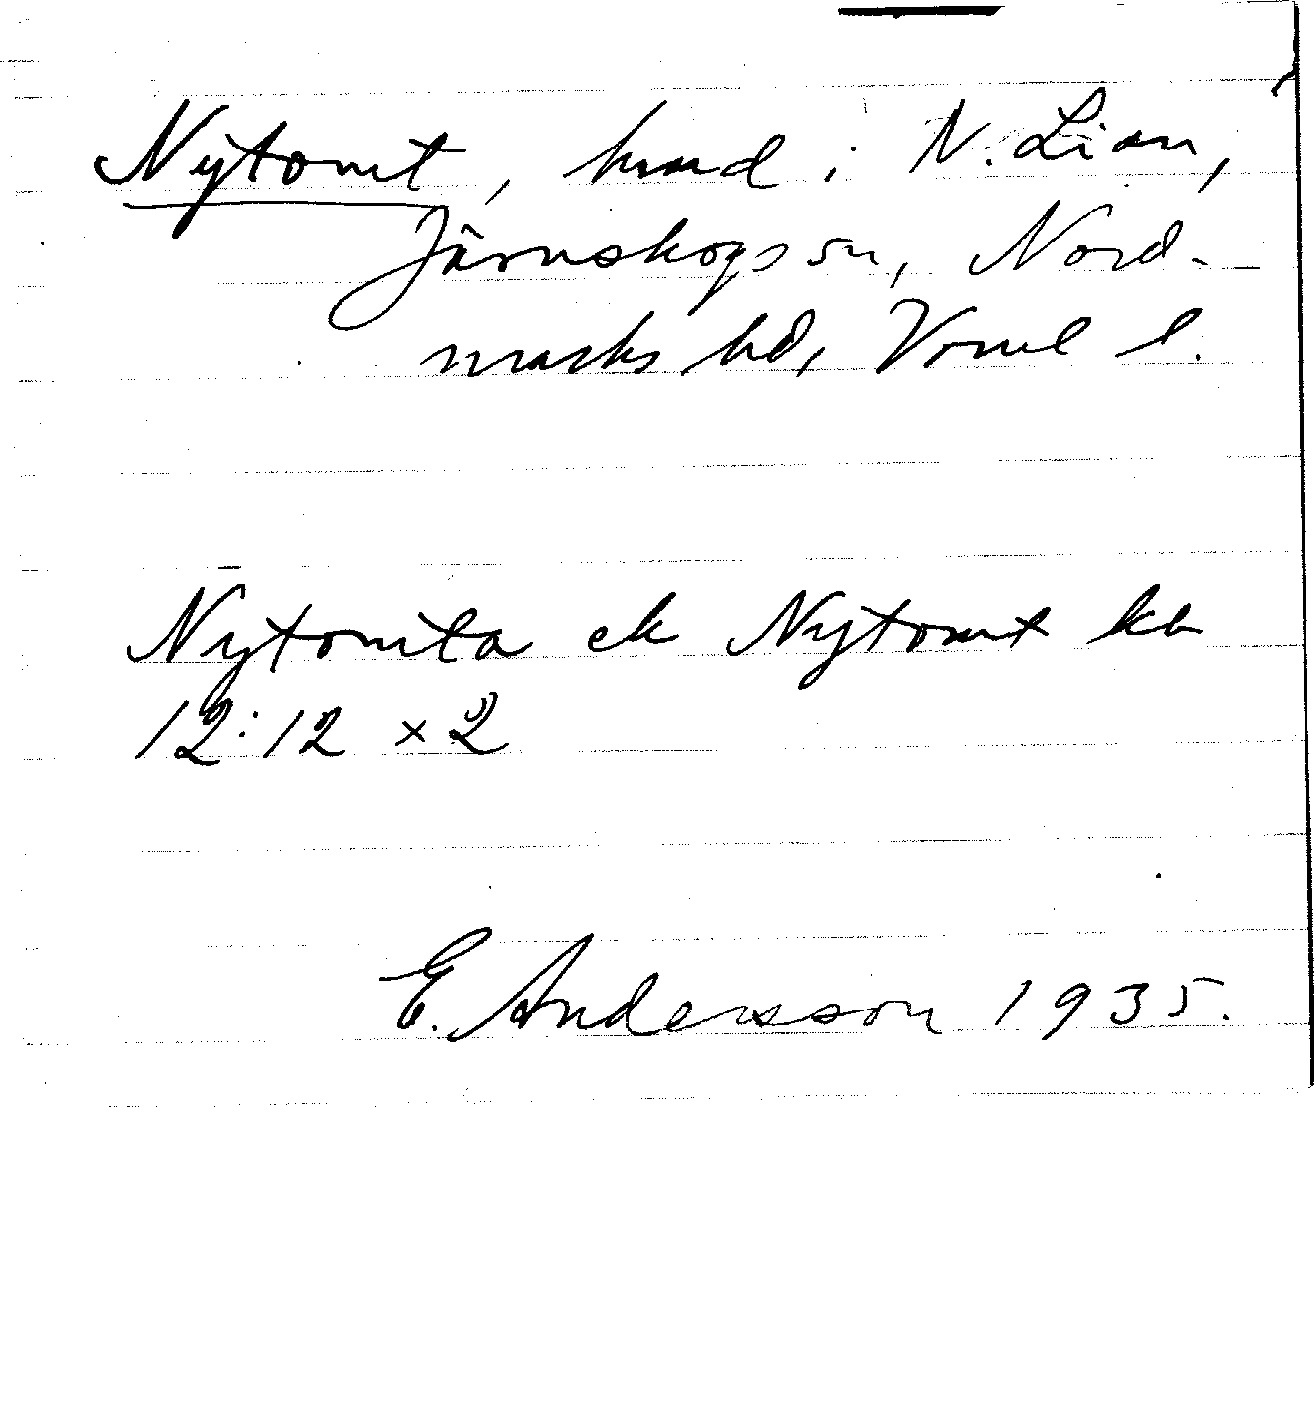 Nytomt, hmd i N. Lian,
Järnskogs sn, Nord-
marks hd, Vrml l.
Nytomta ek Nytomt kb
12:12 x 2
E. Andersson 1935.